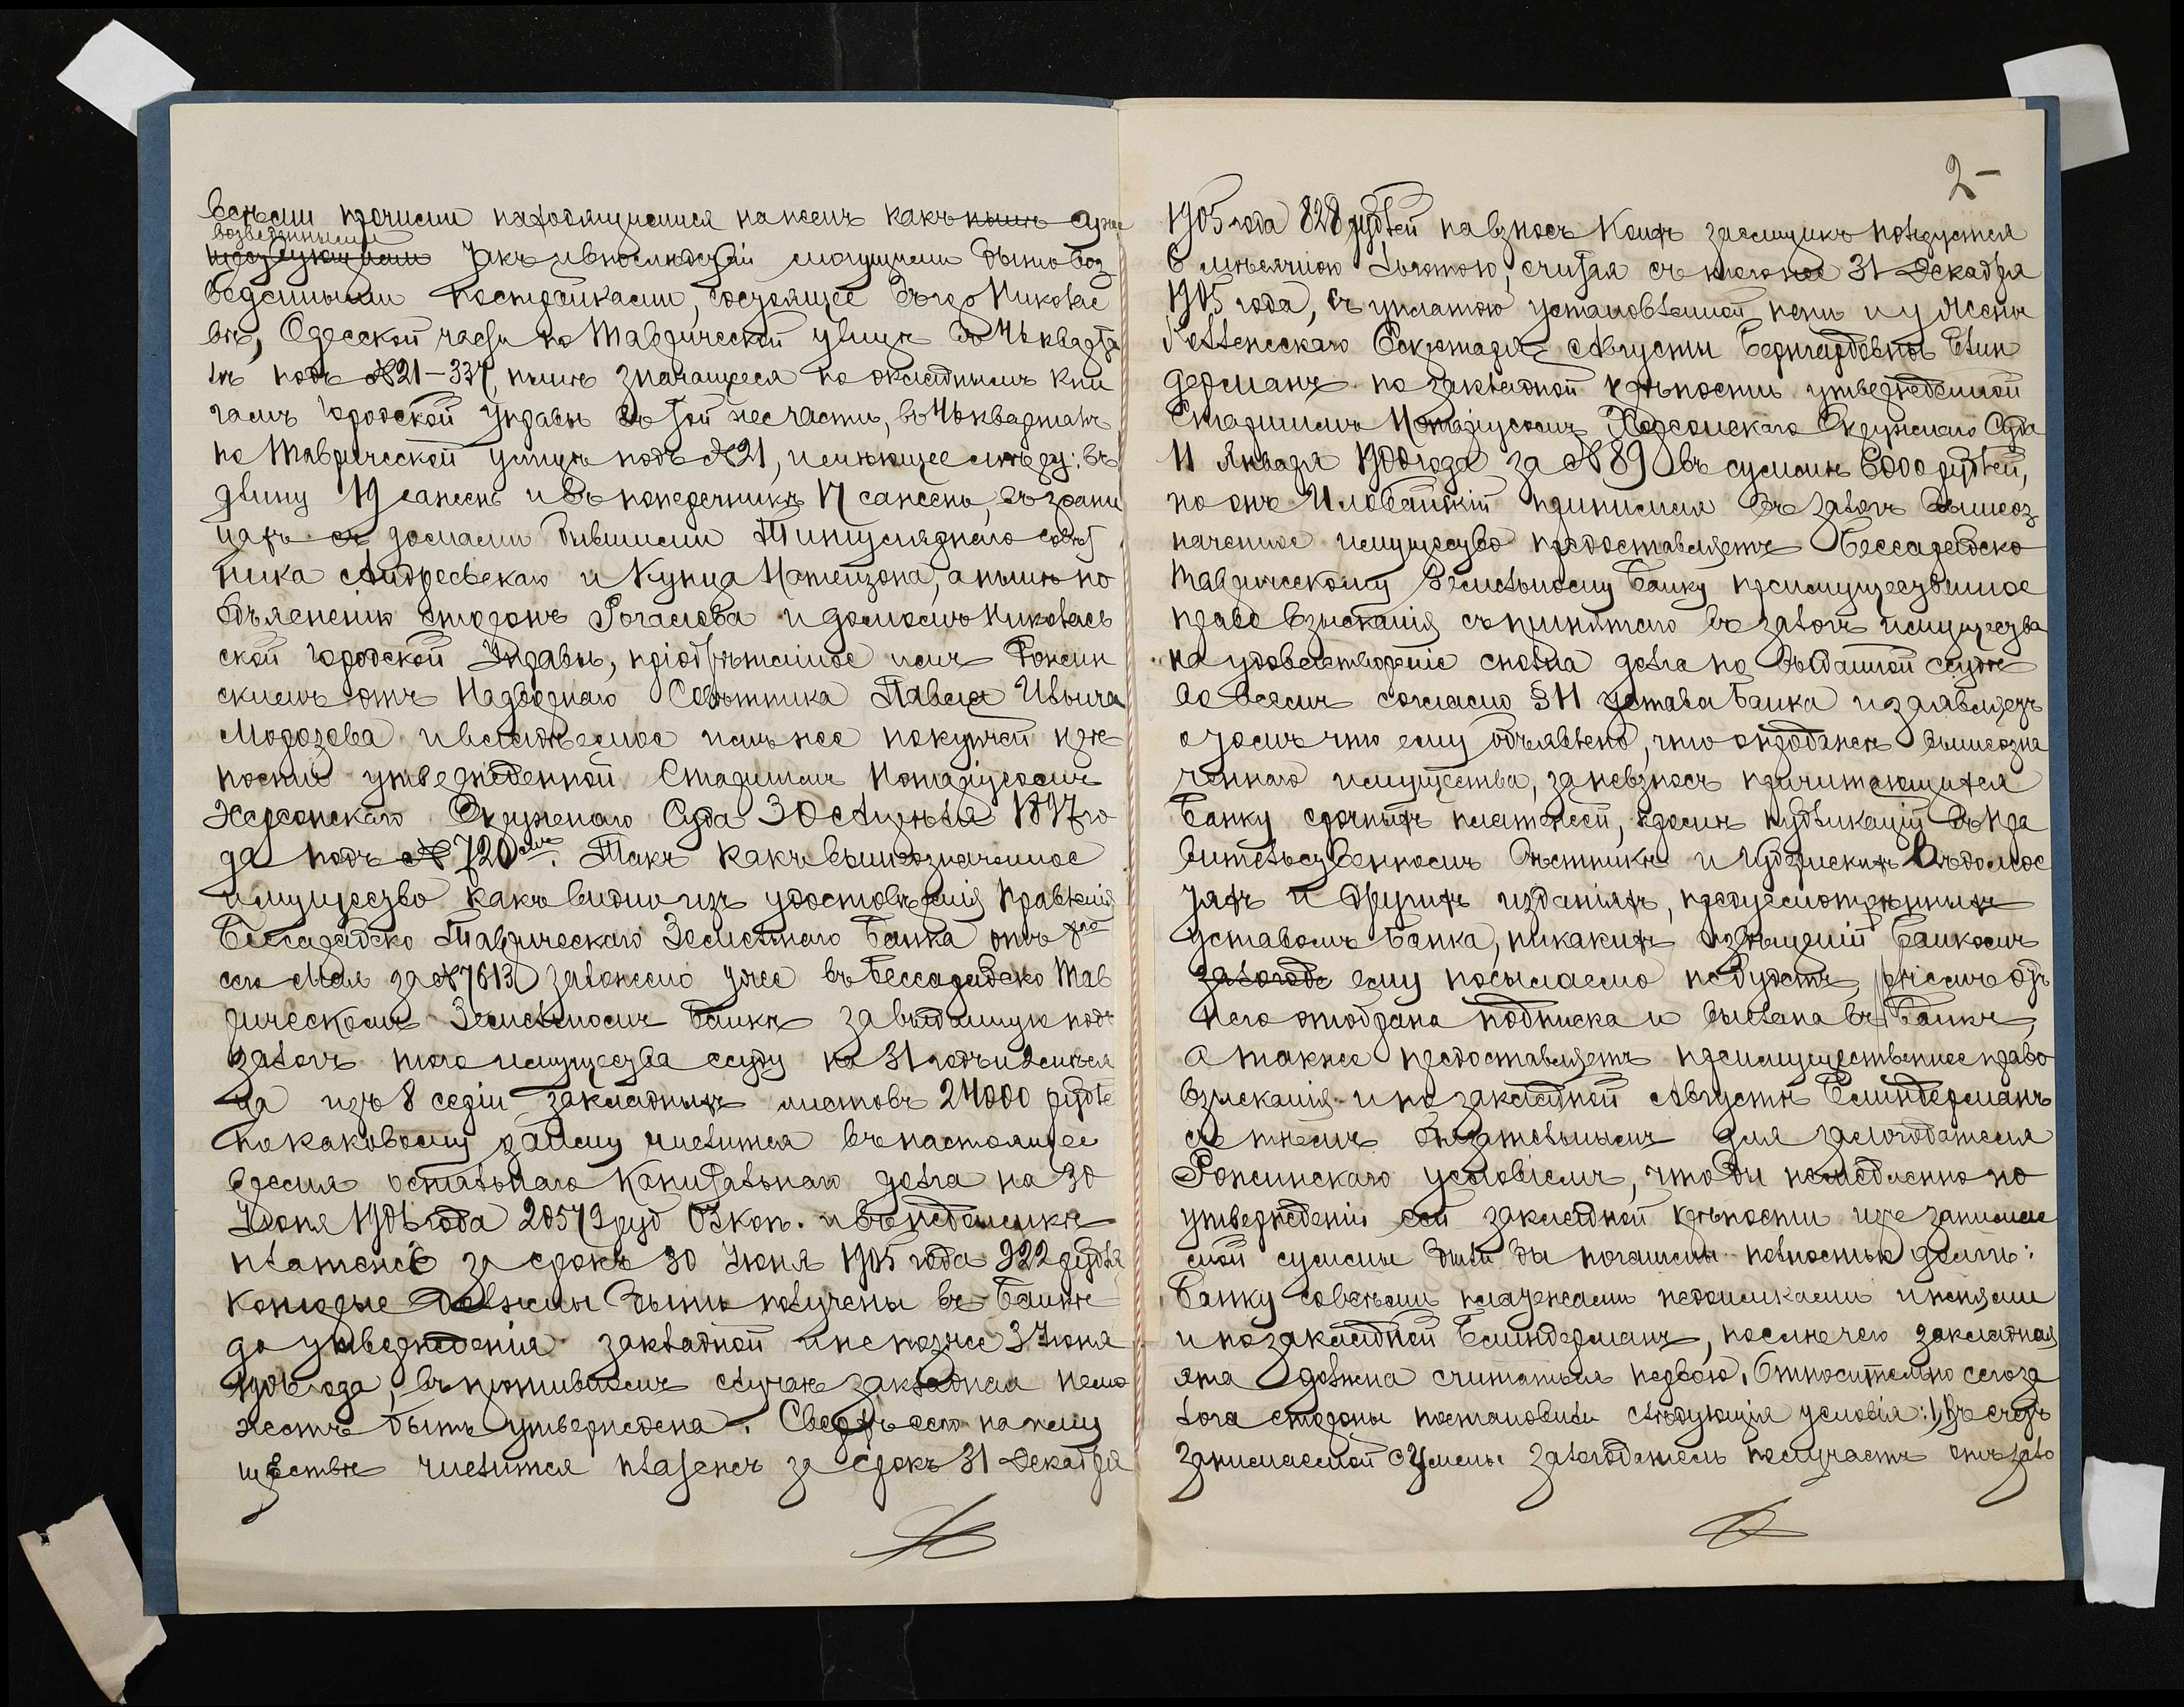 всѣми прочими находящимися на немъ какъ нынѣ уже
возведенными
такъ и впослѣдствіи могущими быть воз
веденными постройками, состоящее въ гор Николае
вѣ, Одесской части по Таврической улицѣ въ 46 кварта
лѣ подъ №21-337, нынѣ значащееся по окладнымъ кни
гамъ Городской Управы въ той же части, въ 46 кварталѣ
по Таврической улицѣ подъ №21, имѣющее мѣру: въ
длину 19 саженъ и въ поперечникѣ 17 саженъ, въ грани
цахъ съ домами бывшими Титулярнаго совѣт
ника Андреевскаго и Купца Натензона, а нынѣ по
объясненію сторонъ Рогачова и домомъ Николаев
ской Городской Управы, пріобрѣтенное имъ Ронжин
скимъ отъ Надворнаго Совѣтника Павла Ивыча
Морозова и владѣемое имъ по купчей крѣ
пости утвержденной Старшимъ Нотаріусомъ
Херсонскаго Окружнаго Суда 30 Апрѣля 1897 го
да подъ № 720 Такъ какъ вышеозначенное
имущество какъ видно изъ удостовѣренія Правленія
Бессарабско Таврическаго Земельнаго Банка отъ 8го
сего Мая за №7613 заложено уже въ Бессарабско Тав
рическомъ Земельномъ Банкѣ за выданную подъ
залогъ того имущества ссуду на 31 годъ и 2 мѣся
ца изъ 8 серіи закладныхъ листовъ 24000 рубле
по каковому займу числится въ настоящее
время остальнаго капитальнаго долга на 30
Іюня 1906 года 20579 руб 03 коп. и въ недоимкѣ
платежъ за срокъ 30 Іюня 1905 года 922 рубля
которые должны быть получены въ Банкѣ
до утвержденія закладной и не позже 3 Іюня
1906 года, въ противномъ случаѣ закладная не мо
жетъ быть утверждена. Сверхъ сего на иму
ществѣ числится платежъ за срокъ 31 Декабря
2-
1905 года 828 рублей на взносъ коихъ заемщикъ пользуется
6 мѣсячною льготою, считая съ того же 31 Декабря
1905 года, съ уплатою установленной пени и у жены
Коллежскаго Секретаря Августы Бернгардовны Блин
дерманъ по закладной крѣпости утвержденной
Старшимъ Нотаріусомъ Херсонскаго Окружнаго Суда
11 Января 1900 года за №89 въ суммѣ 6000 рублей,
то онъ Иловайскій принимая въ залогъ вышеоз
наченное имущество предоставляетъ Бессарабско
Таврическому Земельному Банку преимущественное
право взысканія съ принятаго въ залогъ имущества
на удовлетвореніе сполна долга по выданной ссудѣ
во всемъ согласно §11 устава Банка и заявляетъ
о томъ что ему объявлено, что о продажѣ вышеозна
ченнаго имущества, за невзносъ причитающихся
Банку срочныхъ платежей, кромѣ публикацій въ Пра
вительственномъ Вѣстникѣ и Губернскихъ Вѣдомос
тяхъ и другихъ изданіяхъ, предусмотрѣнныхъ
уставомъ Банка, никакихъ извѣщеній Банкомъ
ему посылаемо не будетъ, въ чемъ отъ
него отобрана подписка и выслана въ Банкъ,
а также предоставляетъ преимущественное право
взысканія и по закладной Августѣ Блиндерманъ
съ тѣмъ обязательнымъ для залогодателя
Ронжинскаго условіемъ, чтобы немедленно по
утвержденіи сей закладной крѣпости изъ занимае
мой суммы были бы погашены полностью долги:
Банку со всѣми платежами недоимками и пенями
и по закладной Блиндерманъ, послѣ чего закладная
эта должна считаться первою. Относительно сего за
лога стороны постановили слѣдующія условія: 1) Въ счетъ
занимаемой суммы залогодатель получаетъ отъ зало